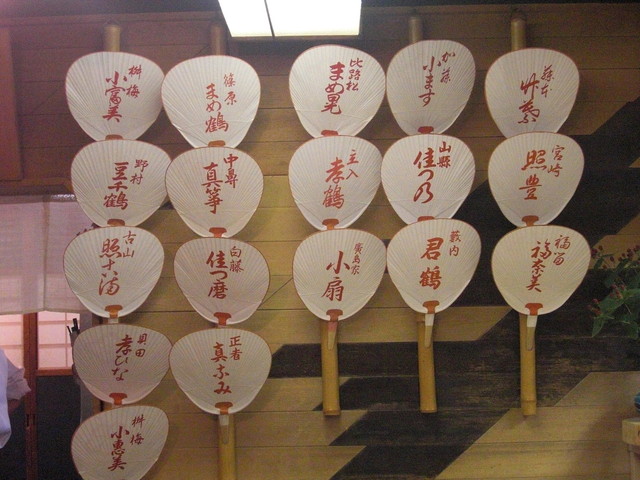 桝梅
小富美
野村
豆千鶴
古山
照古満
貝田
孝ひな
桝梅
小恵美
篠原
まめ鶴
中鼻
真箏
白藤
佳つ磨
正者
真なみ
比路松
まめ晃
主入
孝鶴
廣島家
小扇
加藤
小ます
山縣
佳つ乃
薮内
君鶴
藤本
宮崎
照豊
福留
福奈美